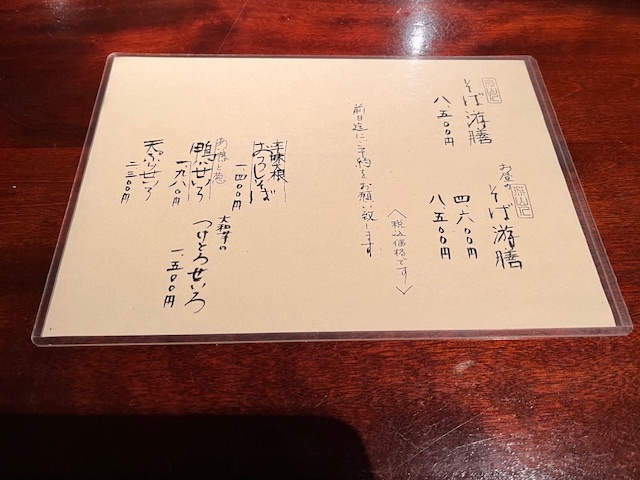 お昼の
そば游膳
四、六〇〇円
八、五〇〇円
そば游膳
八、五〇〇円
〈税込価格です〉
前日迄にご予約をお願い致します
辛味大根
おろしそば
一、四〇〇円
大和芋の
つけとろせいろ
一、五〇〇円
鴨せいろ
一、九八〇円
天ぷらせいろ
二三〇〇円